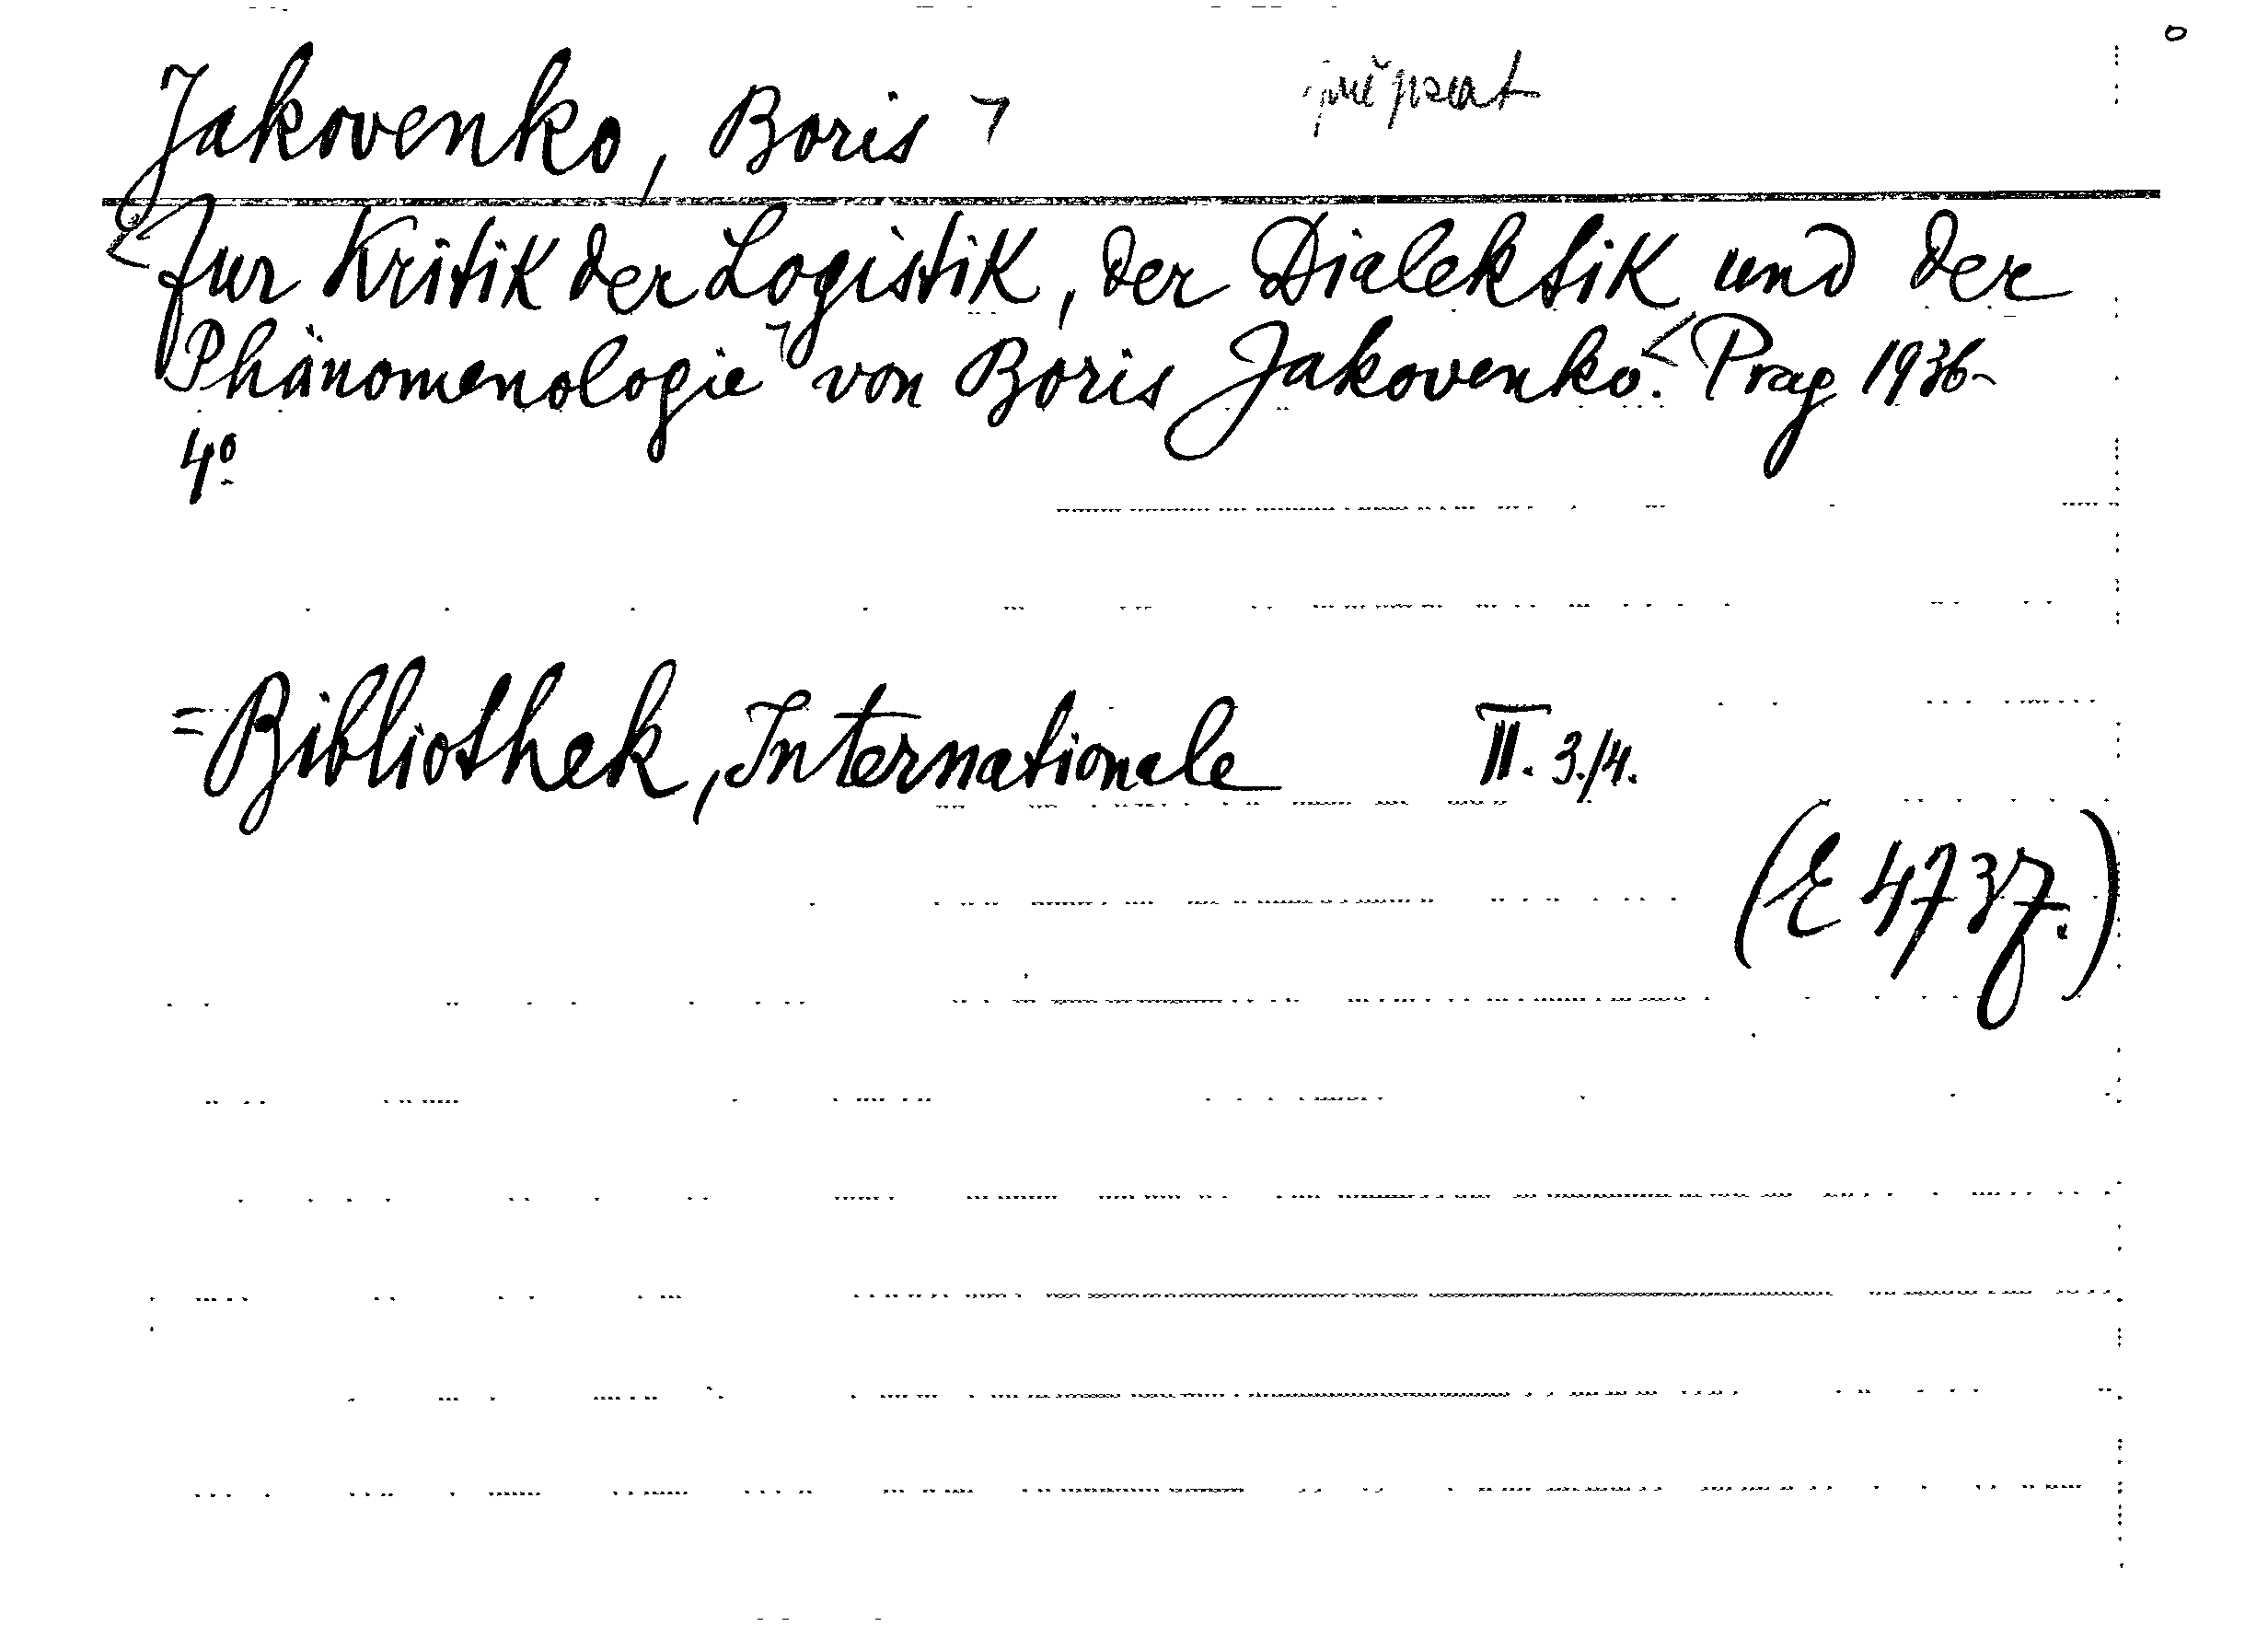 Jakovenko, Boris
Zur Kritik der Logistik, der Dialektik und der
Phänomenologie von Boris Jakovenko. Prag 1936-
4°
=Bibliothek, Internationale II. 3./4.
(E 4737.)